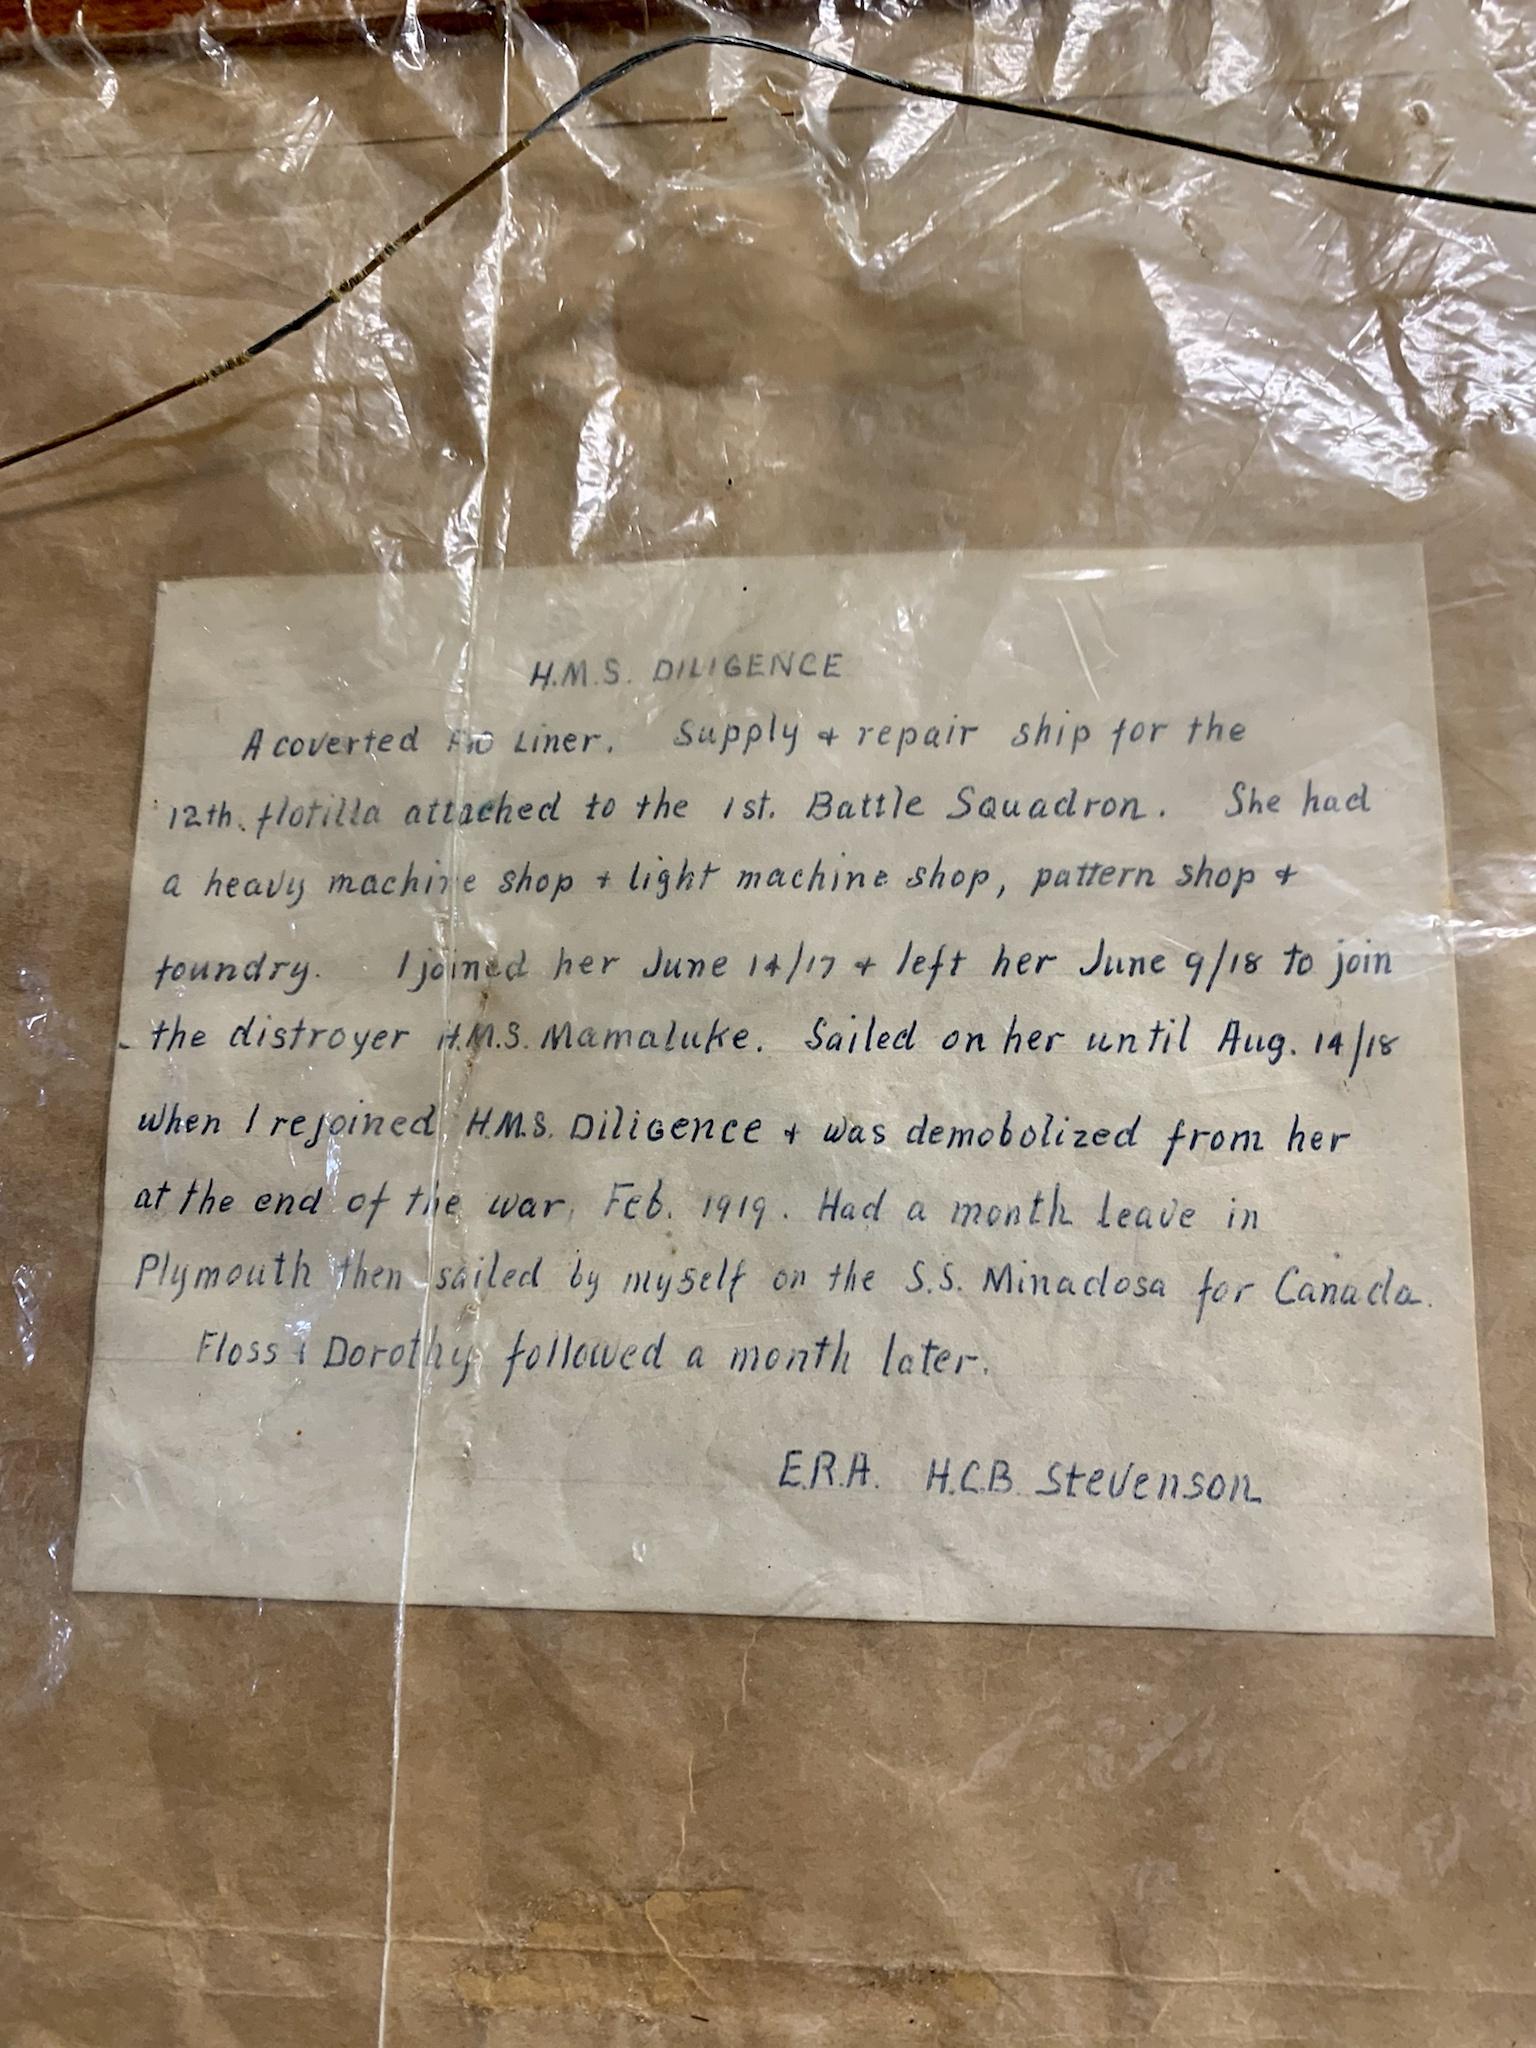 H.M.S. DILIGENCE
A coverted Liner. Supply + repair ship for the
12th. flotilla attached to the 1st. Battle Squadron. She had
a heavy machine shop + light machine shop, pattern shop +
foundry. I joined her June 14/17 + left her June 9/18 to join
the distroyer H.M.S. Mamaluke. Sailed on her until Aug. 14/18
when I rejoined H.M.S. Diligence + was demobolized from her
at the end of the war, Feb. 1919. Had a month leave in
Plymouth then sailed by myself on the S.S. Minadosa for Canada.
Floss + Dorothy followed a month later.
E.R.A. H.C.B. Stevenson